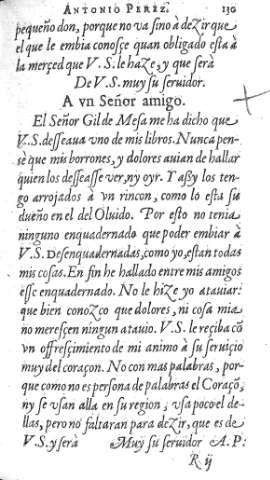 ANTONIO PEREZ. 130
pequeño don, porque no va sino à deZirque
el que le embia conosçe quan obligado esta à
la merçed que V. S. le haZe, y que serà
De V. S. muy su seruidor.
A vn Señor amigo.
El Señor Gil de Mesa me ha dicho que
V. S. desseaua vno de mis libros. Nunca pen-
sè que mis borrones, y dolores auian de hallar
quien los desseasse ver, ny oyr. Y assy los ten-
go arrojados à vn rincon, como lo esta su
dueño en el del Oluido. Por esto no tenia
ninguno enquadernado que poder embiar à
V. S. Desenquadernadas, como yo, estan todas
mis cosas. En fin he hallado entre mis amigos
esse enquadernado. No le hiZe yo atauiar:
que bien conoZco que dolores, ni cosa mia
no meresçen ningun atauio. V. S. le reçiba cõ
vn offresçimiento de mi animo à su seruiçio
muy del coraçon. No con mas palabras, por-
que como no es persona de palabras el Coraçõ,
ny se vsan alla en su region, vsa poco el de-
llas, pero no faltaran para deZir, que es de
V. S. y serà Muy su seruidor A. P:
R ij